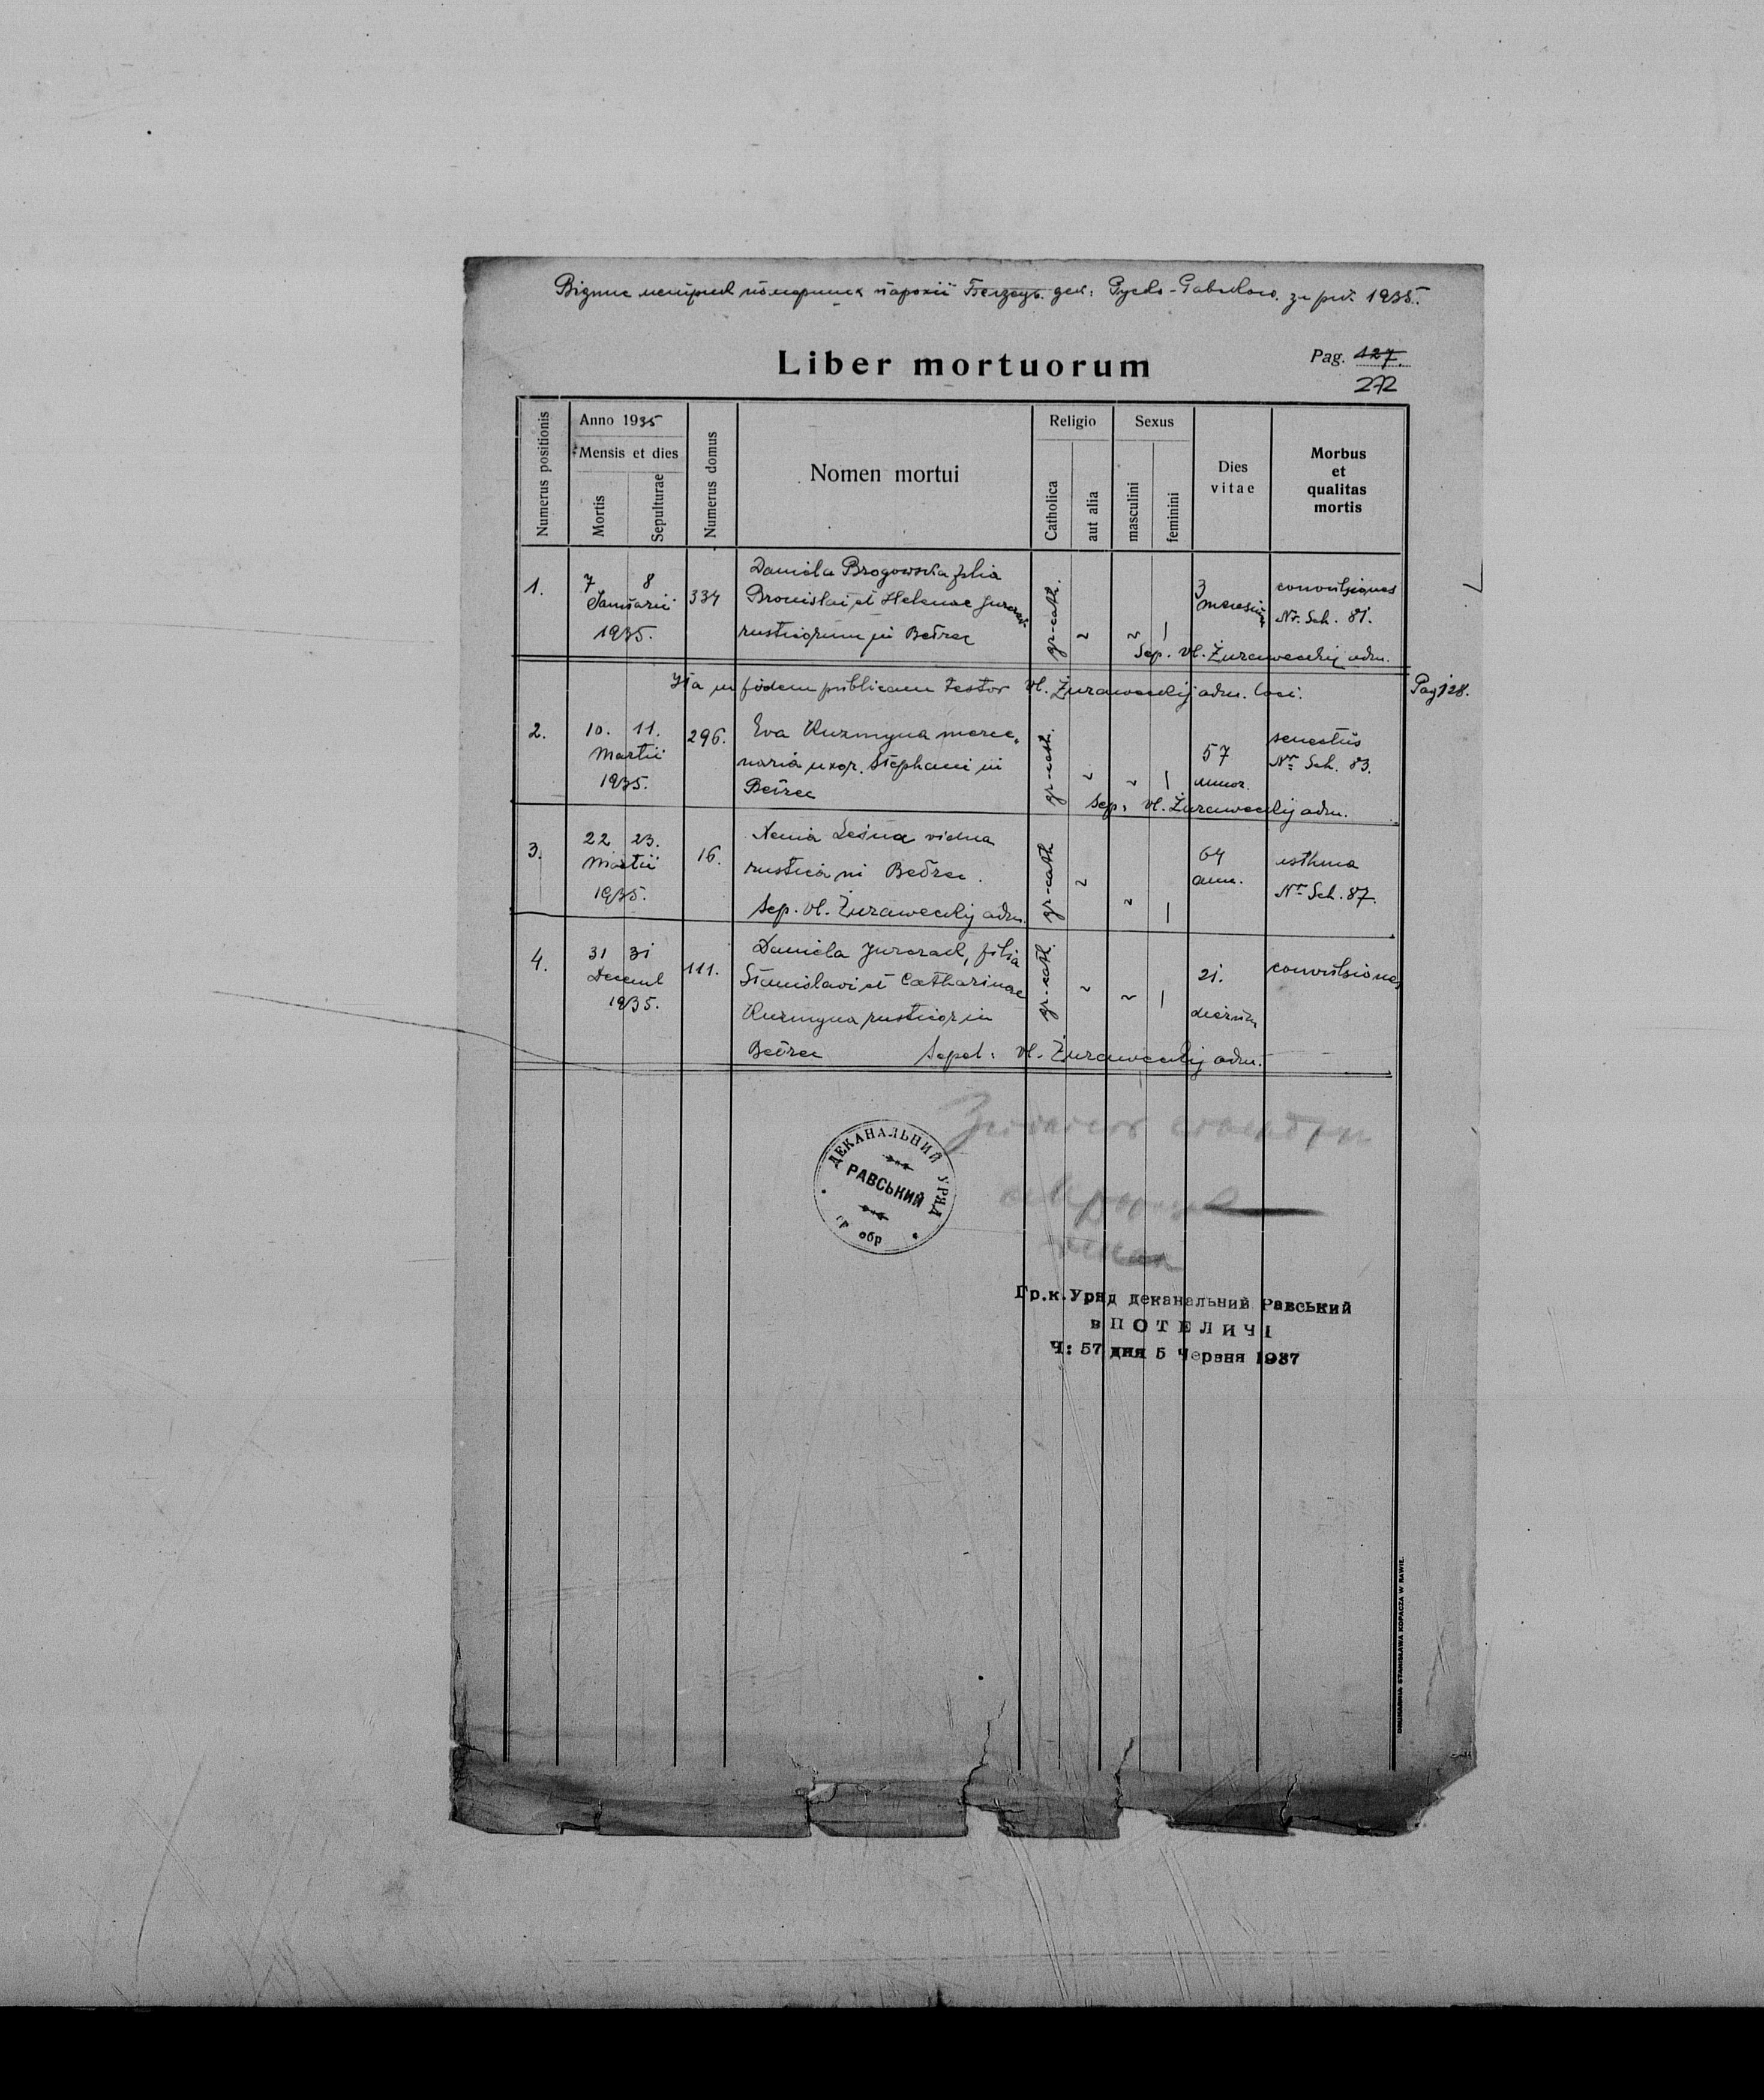 Відпис метрик померших парохії Белзець дек: Руско-Равского за рік 1935.
Liber mortuorum
Pag. 127.
272
Numerus positionis
Anno 1935
Mensis et dies
Mortis
Sepulturae
Numerus domus
Nomen mortui
Religio
Catholica
aut alia
Sexus
masculini
feminini
Dies
vitae
Morbus
et
qualitas
mortis
1.
7 8
Januarii
1935.
334
Daniela Brogowska filia
Bronislai et Helenae Jurczak
rusticorum in Bełzec
gr-cath.
3
mensium
convulsiones
Nr. Sch. 81.
Sep. Vl. Żuraweckij adm.
Ita in fidem publicam testor Vl. Żuraweckij adm. loci.
Pag 128.
2.
10. 11.
Martii
1935.
296.
Eva Kuzmyna merce-
naria uxor. Stephani in
Bełzec
gr-cath.
57
annor.
senectus
Nr. Sch. 83.
Sep. Vl. Żuraweckij adm.
3.
22 23.
Martii
1935.
16.
Xenia Leśna vidua
rustica in Bełzec.
Sep. Vl. Żuraweckij adm.
gr-cath
64
ann.
asthma
Nr Sch. 87.
4.
31 31
Decemb
1935.
111.
Daniela Jurczak, filia
Stanislavi et Catharinae
Kuzmyna rusticor in
Bełzec Sepel: Vl. Żuraweckij adm.
gr-cath.
21.
dierum
convulsiones
ДЕКАНАЛЬНИЙ УРЯД
РАВСЬКИЙ
гр обр
Гр.к.Уряд деканальний Равський
в ПОТЕЛИЧІ
Ч: 57 дня 5 Червня 1937
DRUKARNIA STANISŁAWA KOPACZA W RAWIE.